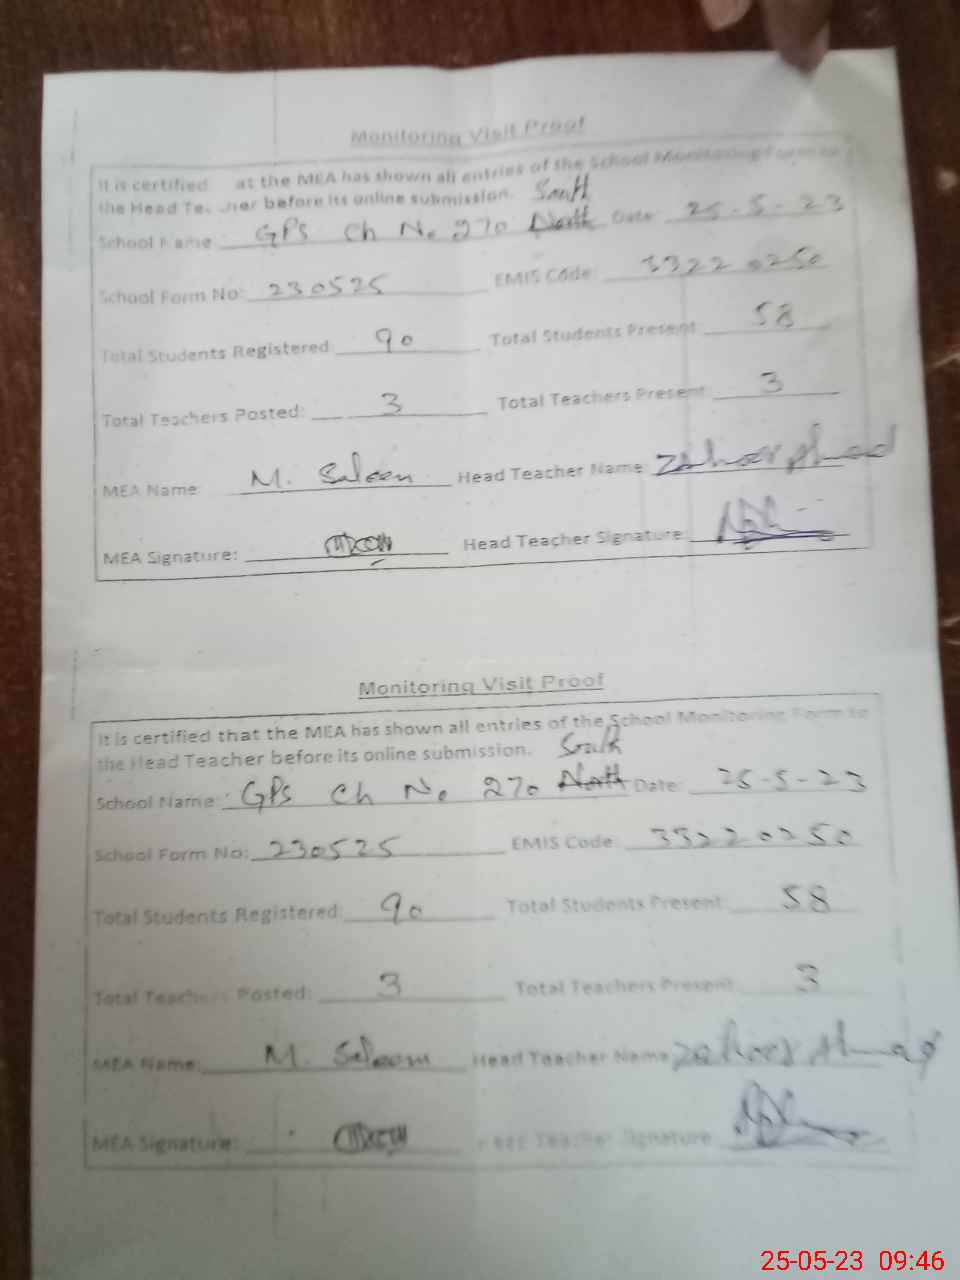 Monitoring Visit Proof
It is certified at the MEA has shown all entries of the School Monitoring Form to
the Head Teacher before its online submission. South
School Name: GPS Ch No 270 North Date: 25-5-23
School Form No: 230525 EMIS Code: 33220250
Total Students Registered 90 Total Students Present 58
Total Teachers Posted: 3 Total Teachers Present: 3
MEA Name M. Saleem Head Teacher Name Zahoor Ahmad
MEA Signature: Head Teacher Signature:
Monitoring Visit Proof
It is certified that the MEA has shown all entries of the School Monitoring Form to
the Head Teacher before its online submission. South
School Name: GPS Ch No 270 North Date: 25-5-23
School Form No: 230525 EMIS Code: 33220250
Total Students Registered: 90 Total Students Present: 58
Total Teachers Posted: 3 Total Teachers Present 3
MEA Name: M. Saleem Head Teacher Name Zahoor Ahmad
MEA Signature: Head Teacher Signature
25-05-23 09:46